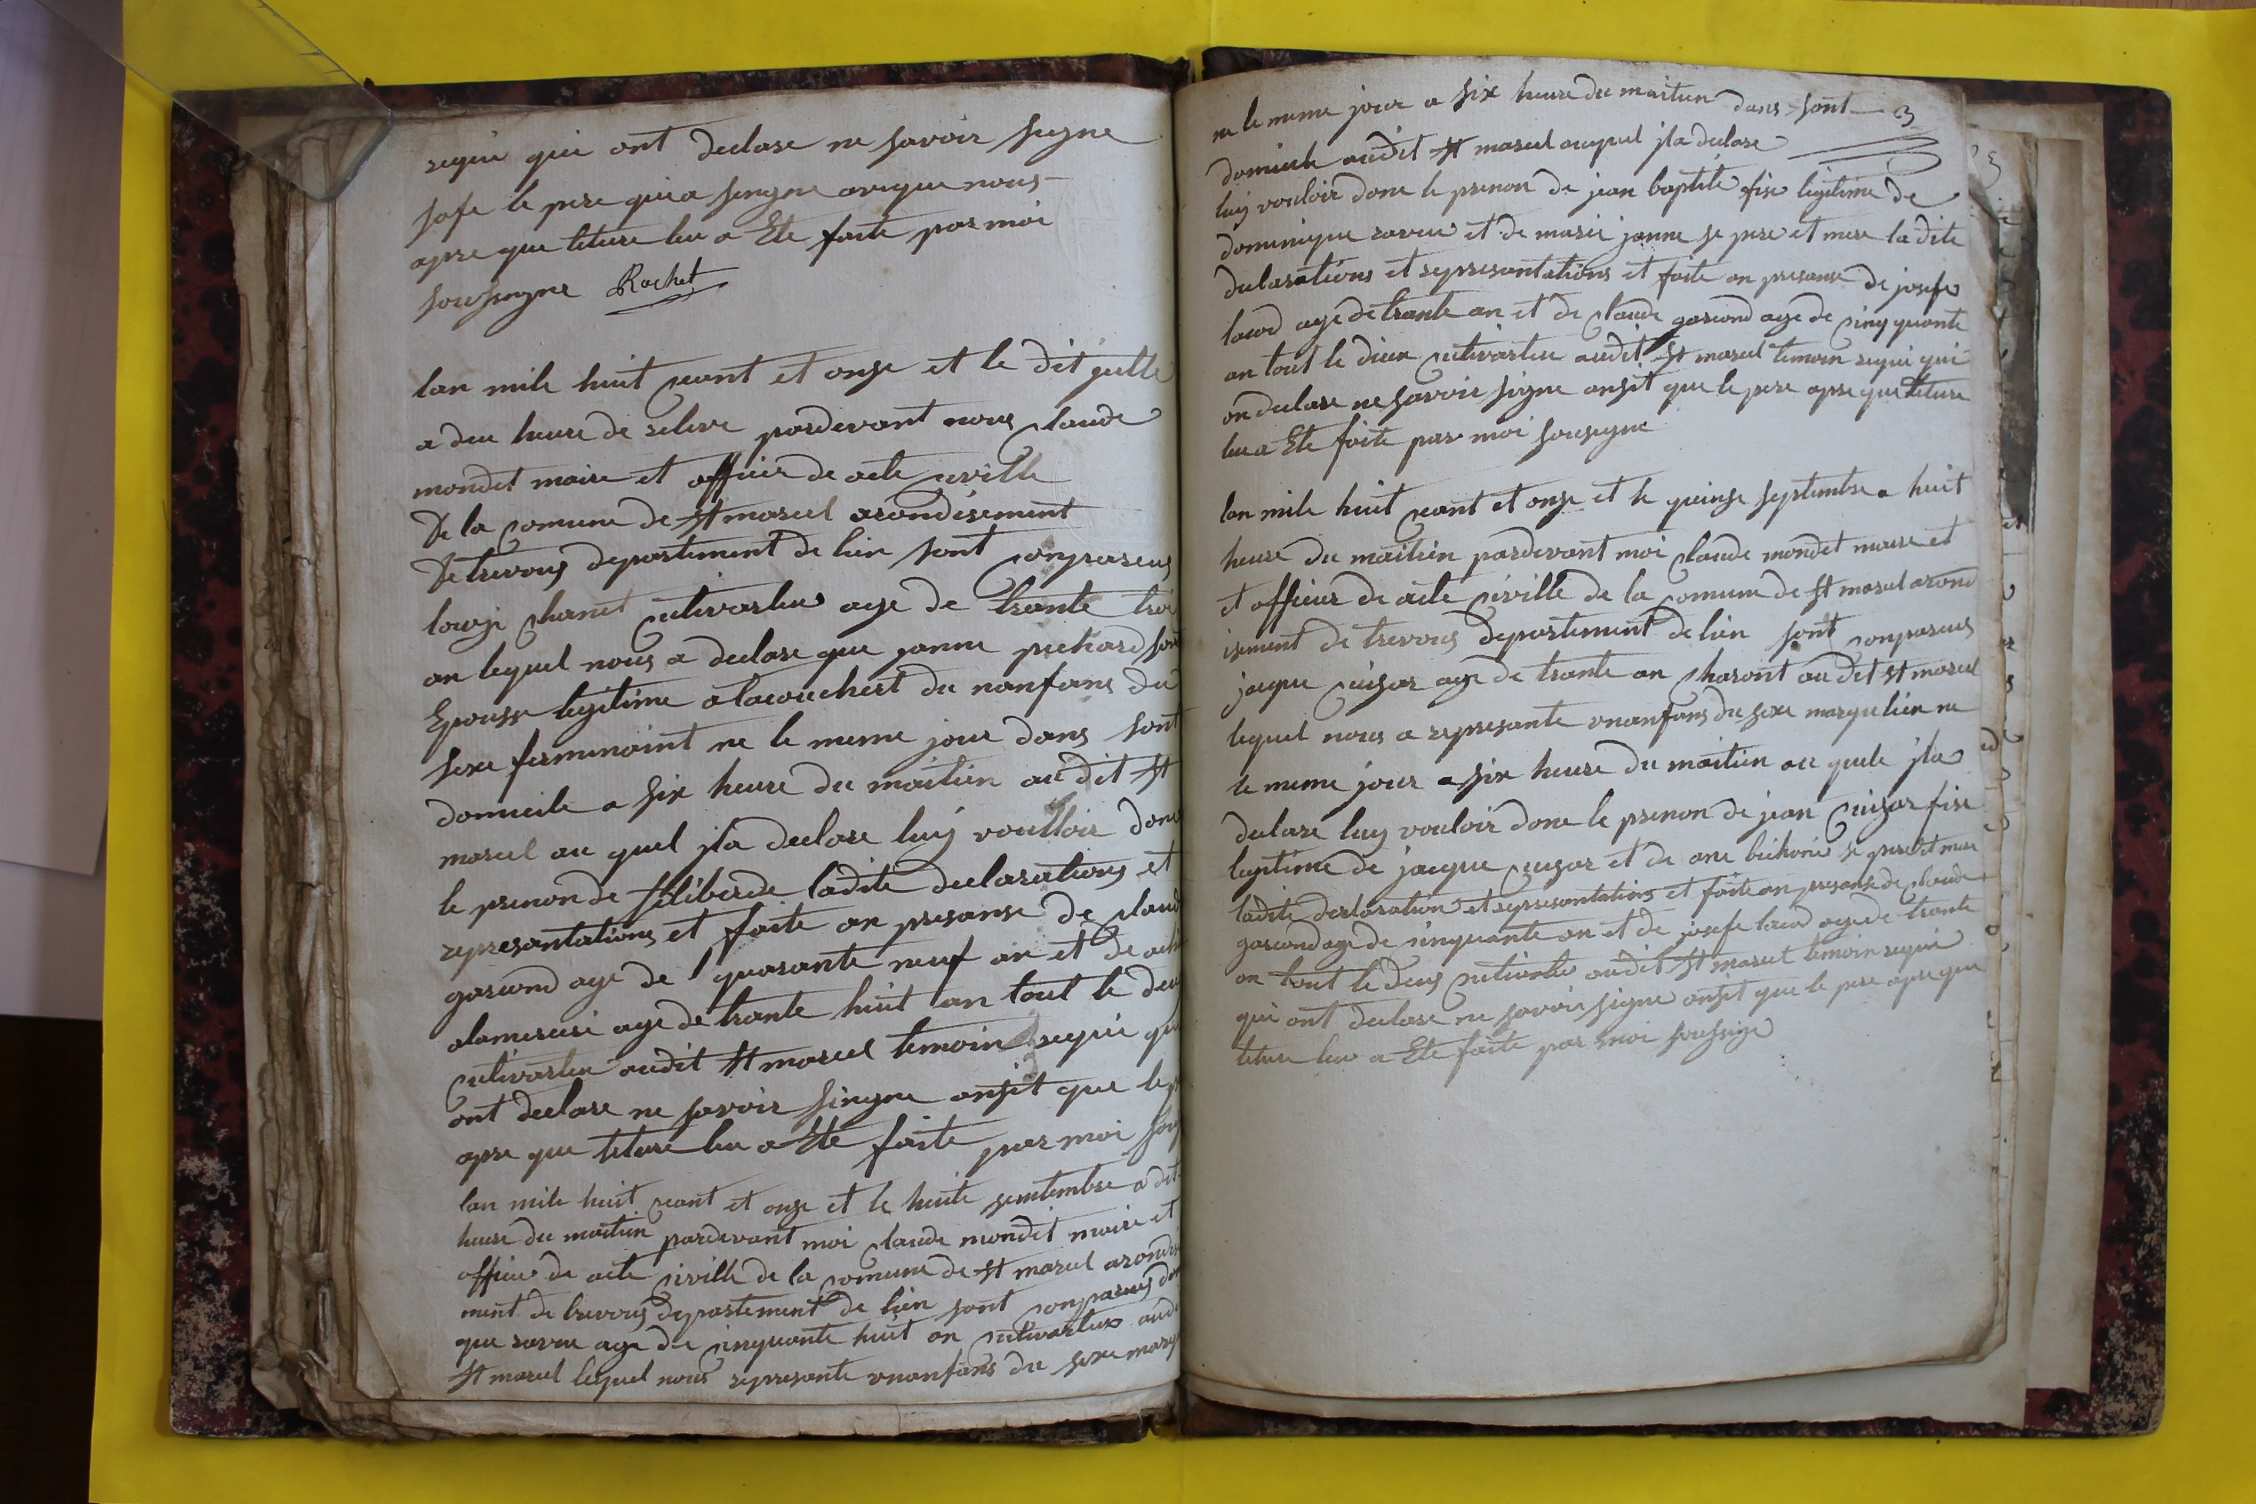 requi qui ont declare ne savoir singne
sofe le pere quia singne aveque nous
apre que leture leu a Ete faite par moi
sousingne Rochet
lan mile huit cant et onze et le dit julle
a deu heure de releve pardevant nous claude
mondet maire et officier de acte civille
De la comune de St marcel arondisement
De trevous departement de lien sont conpareus
louyi chanet cultivarteu age de trante troi
an lequel nous a declare que janne prichard son
Epousse legitime a lacouchert du nanfans du
sexe ferminaint ne le meme jour dans sont
domicile a six heure du maitien au dit St
marcel au quel jl a declare luy voulloir done
le prenon de feliberde ladite declarations et
represantations et faite an presanse de claude
garcond age de quarante neuf an et de
alamercuri age de trante huit an tout le deu
cultivarteu audit St marcel temoin requi qui
ont declare ne savoir singne ansit que le
apre que leture leu a Ete faite par moi sous
lan mile huit cant et onze et le huite semtembre a dit
heure du maitien pardevant moi claude mondet maire et
officie de acte civille de la comune de St marcel arondise
ment de trevous departement de lien sont conpareus domi
que raveu age de cinquante huit an cultivarteur audi
St marcel lequel nous represante unanfans du sexe marq
ne le meme jour a six heure du maitien dans sont 3
domicile audit St marcel auquel jl a declare
luy vouloir done le prenon de jean baptite fise legitime de
dominique raveu et de marie janne se pere et mere la dite
declarations et represantations et faite an presanse de josefe
laud age de trante an et de claude garcond age de cinq quante
an tout le dieu cultivarteu audit St marcel temoin requi qui
on declare ne savoir signe ansit que le pere apre que leture
leu a Ete faite par moi sousigne
lan mile huit cant et onze et le quinze septembre a huit
heure du maitien pardevant moi claude mondet maire et
et officier de acte civille de la comune de St marcel arond
isement de trevous departement de lien sont conpareus
jaque cuizar age de trante an charont audit St marcel
lequel nous a represante unanfans du sexe marqulien ne
le meme jour a six heure du maitien au quele jl a
declare luy vouloir done le prenon de jean cuizar fise
legitime de jaque cuzar et de ane bichonie se pere et mere
ladite declaration et represantations et faite an presanse de claude
garcond age de cinquante an et de josefe laud age de trante
an tout le deus cultivarteu audit St marcel temoin requi
qui ont declare ne savoir signe ansit que le pere apre que
leture leu a Ete faite par moi sousigne